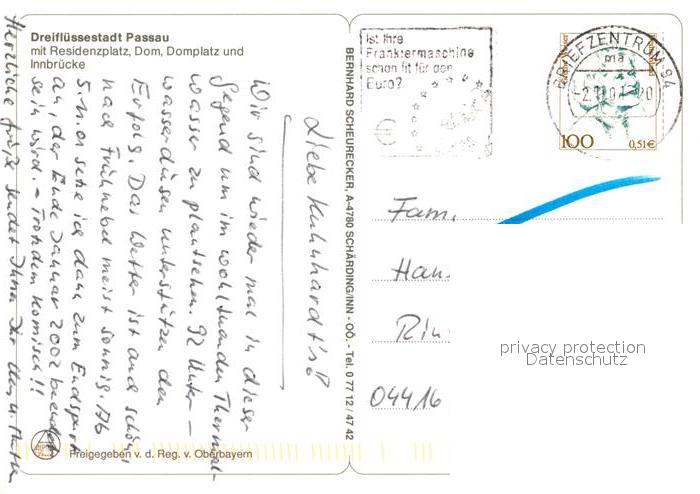 Dreiflüssestadt Passau
mit Residenzplatz, Dom, Domplatz und
Innbrücke
Liebe Kuhnhardt's!
Wir sind wieder mal in dieser
Gegend um im wohltuenden Thermal-
wasser zu plantschen. 92 Unter-
wasserdüsen unterstützen den
Erfolg. Das Wetter ist auch schön,
nach Frühnebel meist sonnig. Ab
5.11. setze ich dann zum Endspurt
an, der Ende Januar 2002 beendet
sein wird. - Trotzdem komisch!!
Herzliche Grüße sendet Ihnen Ihr
Freigegeben v. d. Reg. v. Oberbayern
BERNHARD SCHEURECKER, A-4780 SCHÄRDING/INN - OÖ. - Tel. 0 77 12 / 47 42
Ist Ihre
Frankiermaschine
schon fit für den
Euro?
BRIEFZENTRUM 94
100 0,51€
Fam.
Han
Rin
04416
privacy protection
Datenschutz